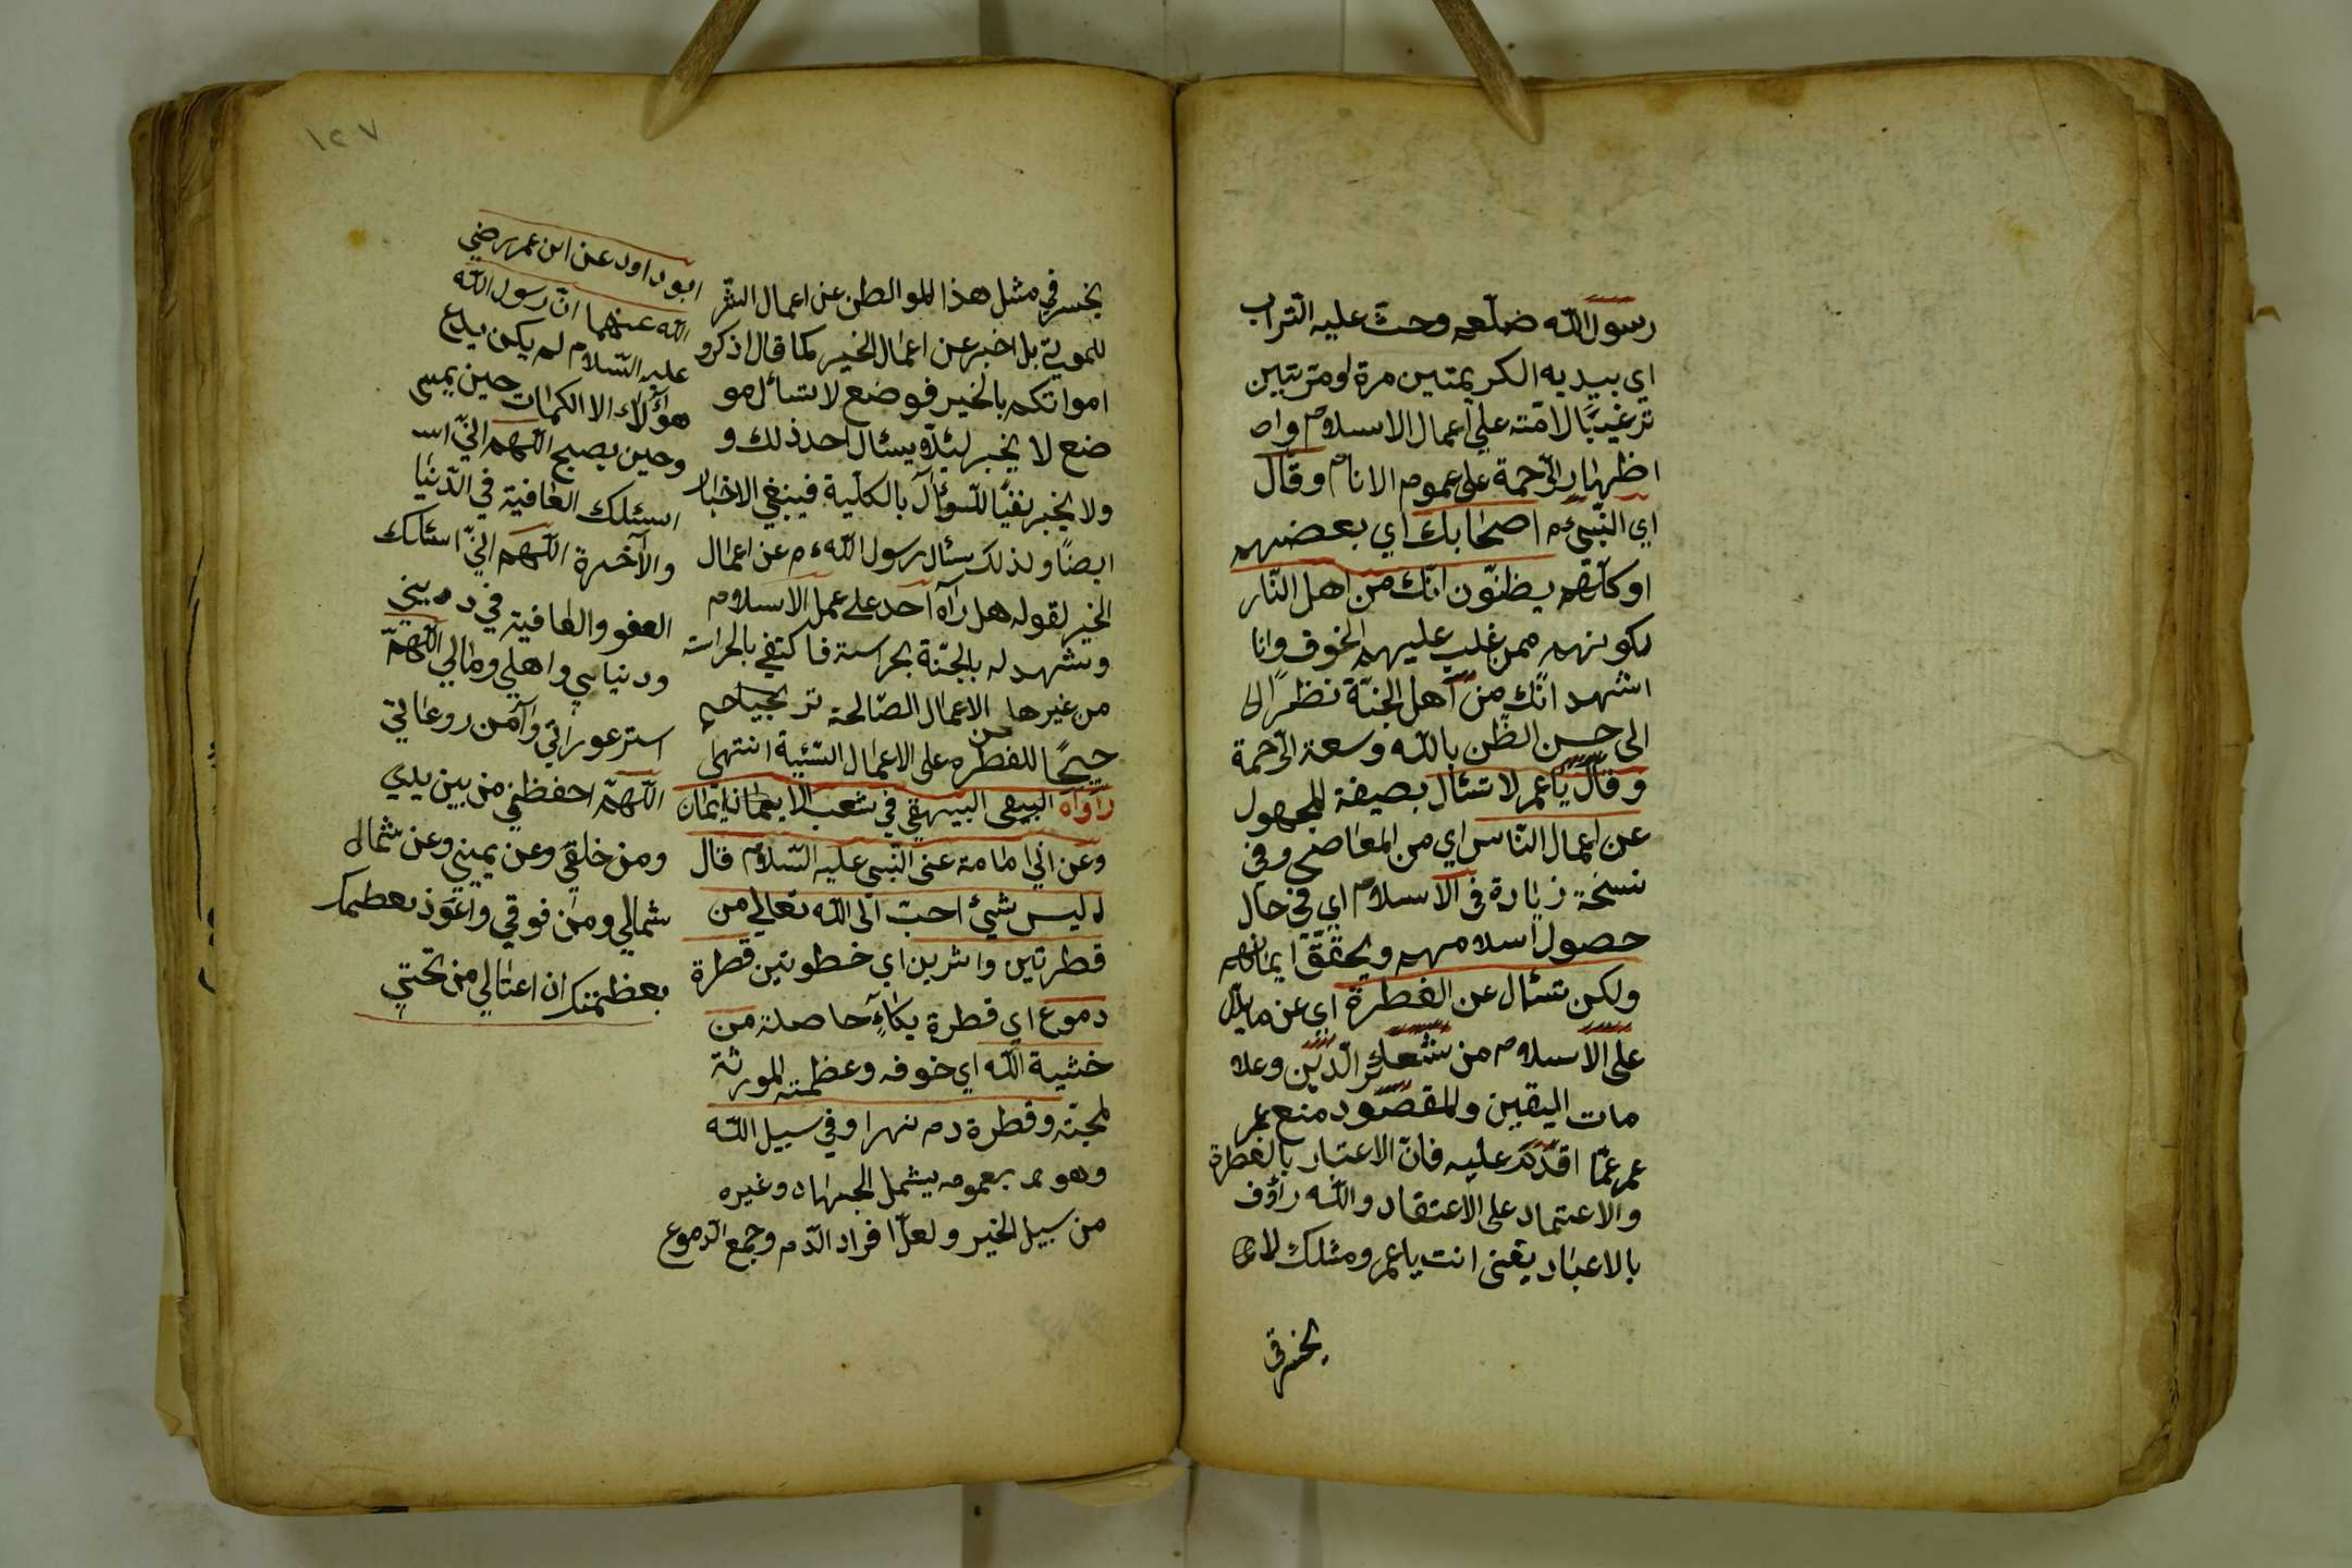 رسول الله صلعم وحث عليه التراب
اي بيديه الكريمتين مرة او مرتين
ترغيبًا لامته علي اعمال الاسلام وا
اظهار الرّحمة على عموم الانام وقال
اي النّبي ءم اصحابك اي بعضهم
او كلّهم يظنّون انّك من اهل النّار
لكونهم ممن غلب عليهم الخوف وانا
اشهد انّك من اهل الجنّة نظرًا الى
الى حسن الظّن بالله وسعة الرّحمة
وقال يا عمر لا تسئال بصيغة المجهول
عن اعمال النّاس اي من المعاصي وفي
نسخة زيادة في الاسلام اي في حال
حصول اسلامهم ويحقّق ايمانهم
ولكن تسئال عن الفطرة اي عن ما يدلّ
على الاسلام من شعائر الدّين وعلا
مات اليقين والمقصود منع عمر
عمر عمّا اقدم عليه فانّ الاعتبار بالفطرة
والاعتماد على الاعتقاد والله رؤف
بالاعباد يعني انت يا عمر ومثلك لا
يخسر في
١٢٧
يخسر في مثل هذا المواطن عن اعمال الشّر
للموتى بل اخبر عن اعمال الخير كما قال اذكرو
امواتكم بالخير فوضع لا تسائل مو
ضع لا يخبر ليئلّا يسئال احد ذلك و
ولا يخبر نفيًا للسّوئال بالكلّية فينبغي الاخبار
ايضًا ولذلك سئال رسول الله ءم عن اعمال
الخير لقوله هل رآه احد على عمل الاسلام
وشهد له بالجنّة بحراسة فاكتفي بالحراسة
من غيرها من الاعمال الصّالحة ترجيحا
جيحًا للفطره على الاعمال السّيّئة انتهى
رواه البيهقي في شعب الايمان
وعن ابي امامة عن النّبي عليه السّلام قال
ليس شيئ احبّ الى الله تعالي من
قطرتين واثرين اي خطوتين قطرة
دموع اي قطرة بكاء حاصلة من
خشية الله اي خوفه وعظمته المورثة
لمحبّته وقطرة دم تهراو في سبيل الله
وهو بعمومه يشمل الجهاد وغيره
من سبيل الخير ولعلّ افراد الدّم وجمع الدّموع
ابو داود عن ابن عمر رضي
الله عنهما انّ رسول الله
عليه السّلام لم يكن يدع
هؤلاء الا الكلمات حين يمسى
وحين يصبح اللّهم انّي اس
اسئلك العافية في الدّنيا
والآخرة اللّهم انّي اسئلك
العفو والعافية في ديني
ودنياي واهلي ومالي اللّهمّ
استر عوراتي وآمن روعاتي
اللّهمّ احفظني من بين يدي
ومن خلفي وعن يميني وعن شمالي
شمالي ومن فوقي واعوذ بعظمتك
بعظمتك ان اغتالي من تحتي